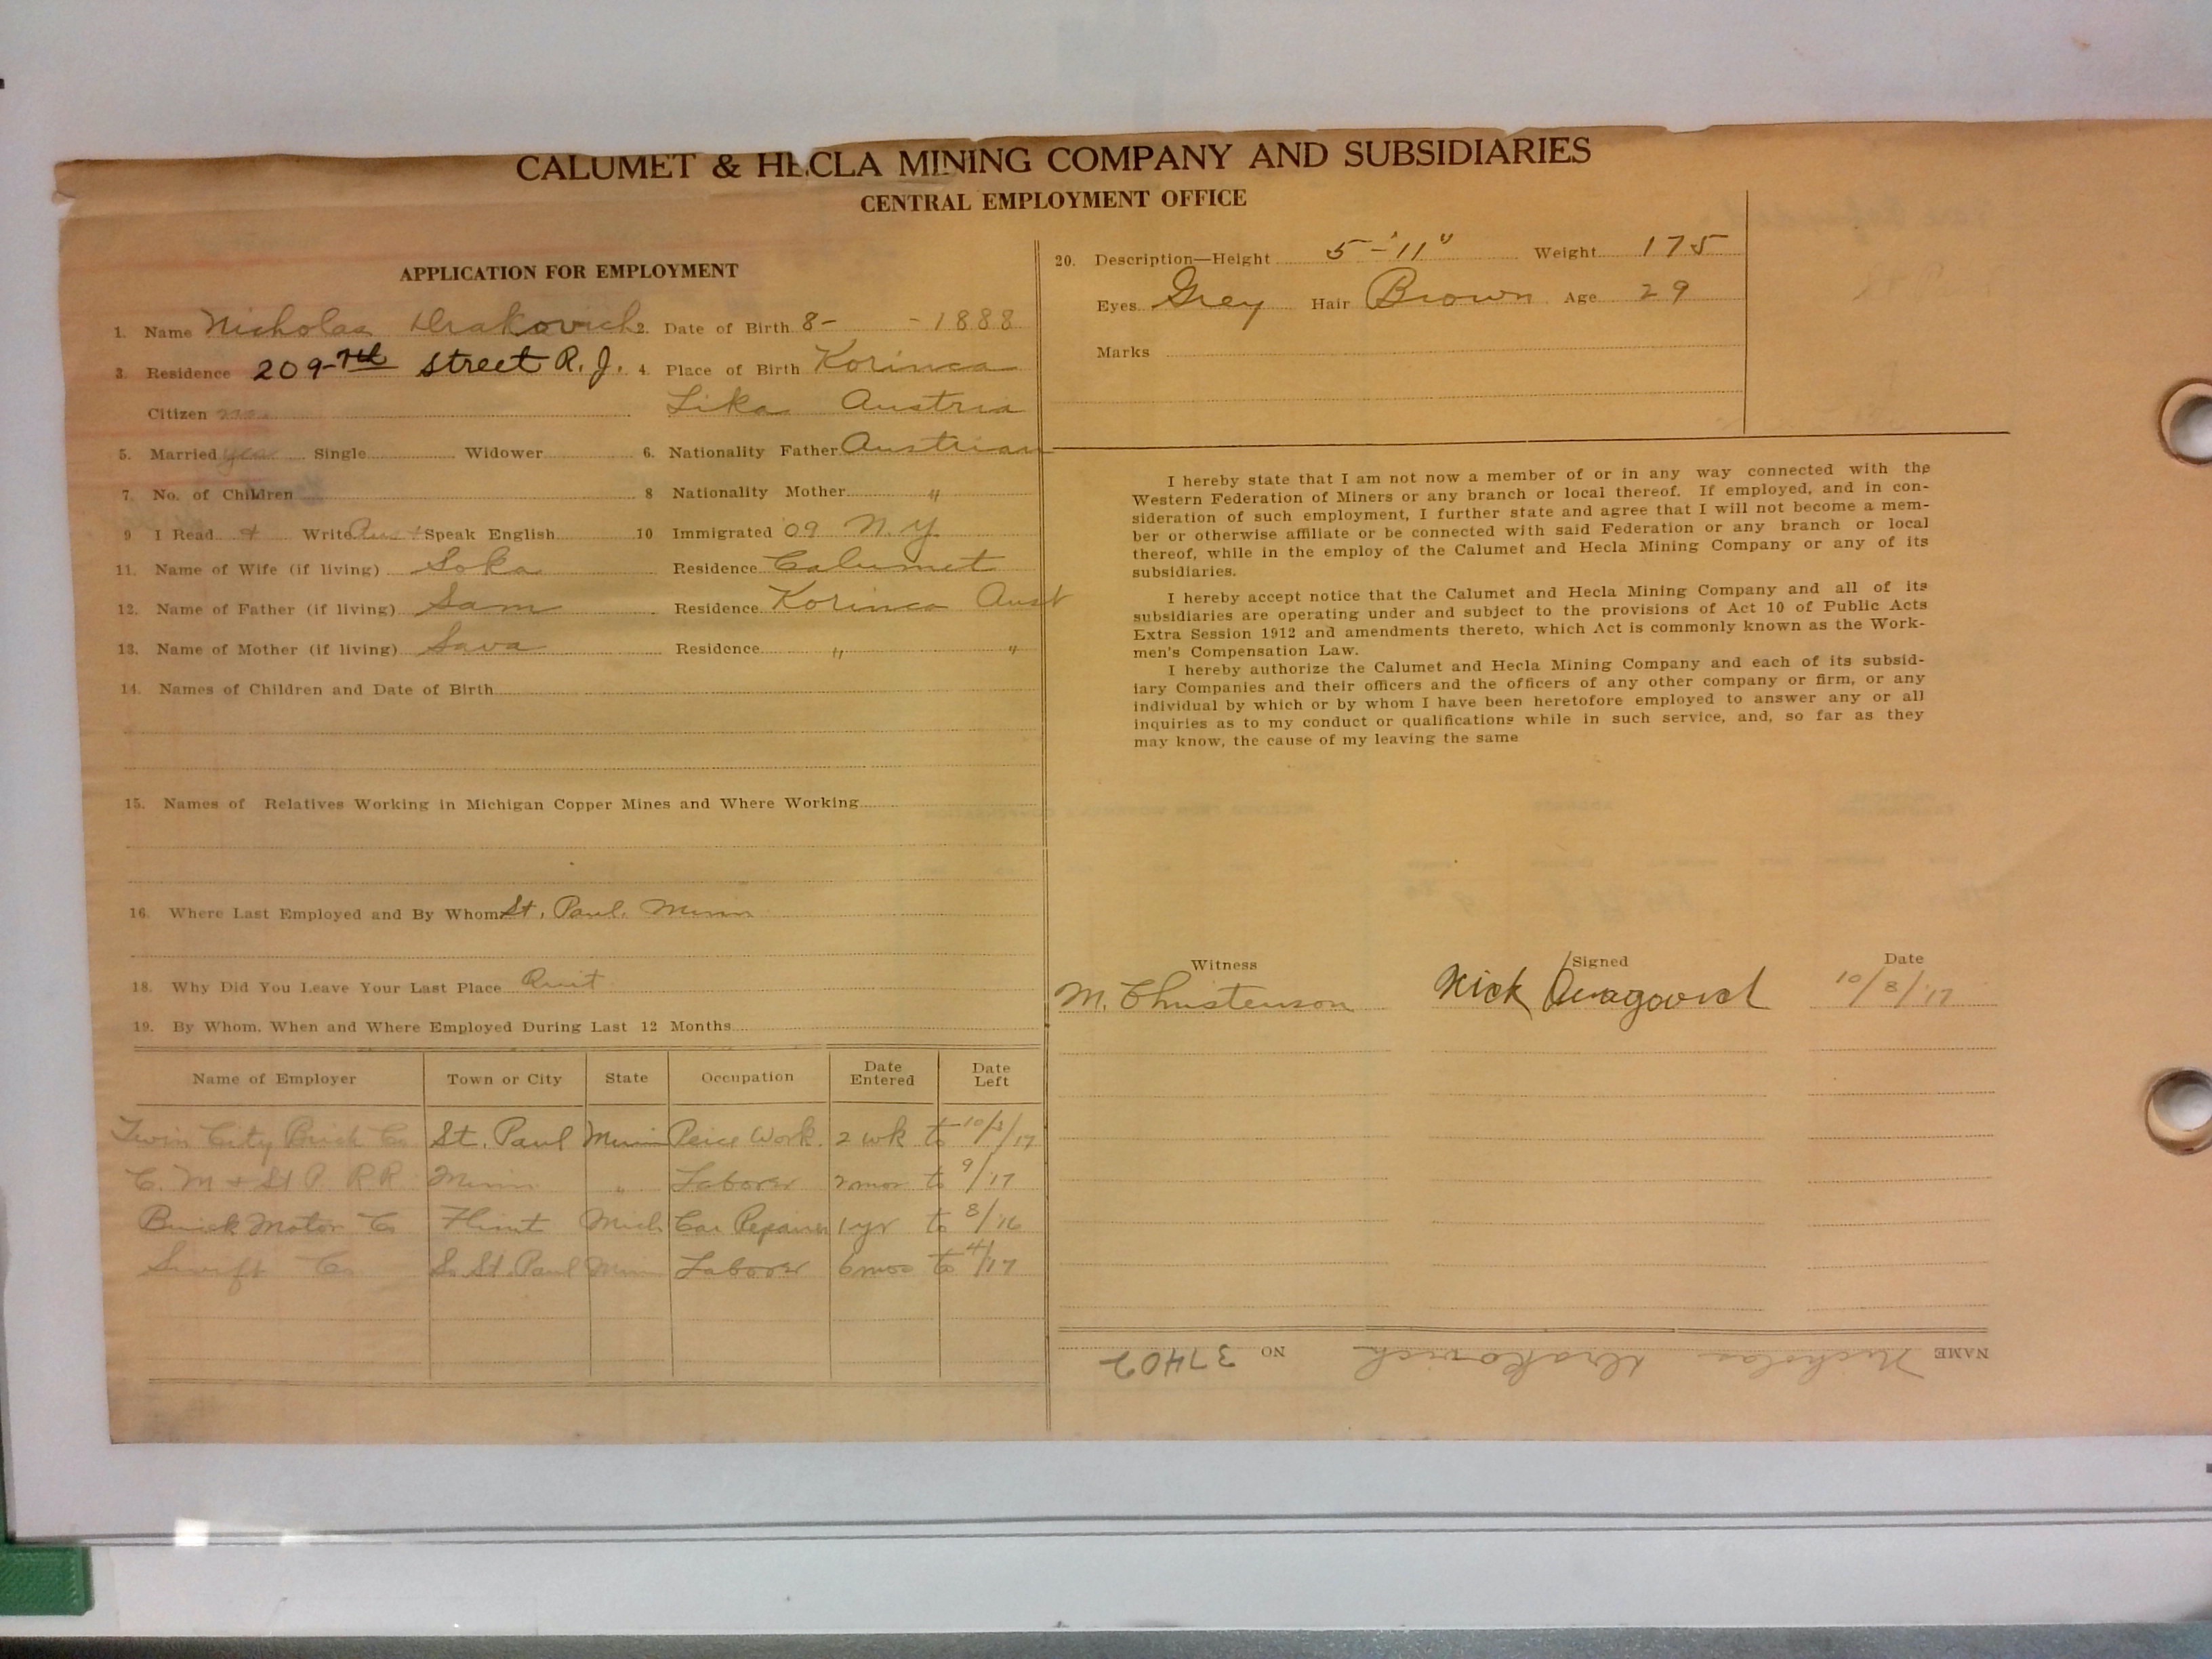 CALUMET & HECLA MINING COMPANY AND SUBSIDIARIES
CENTRAL EMPLOYMENT OFFICE
APPLICATION FOR EMPLOYMENT
1. Name Nicholas Drakovich 2. Date of Birth 8- - 1888
3. Residence 209-7th Street R. J. 4. Place of Birth Korinca
Citizen Lika Austria
5. Married yes Single Widower 6. Nationality Father Austrian
7. No. of Children 8 Nationality Mother "
9 I Read & Write Speak English 10 Immigrated 09 N.Y.
11. Name of Wife (if living) Soka Residence Calumet
12. Name of Father (if living) Sam Residence Korinca Aust
13. Name of Mother (if living) Sava Residence " "
14. Names of Children and Date of Birth
15. Names of Relatives Working in Michigan Copper Mines and Where Working
16. Where Last Employed and By Whom St. Paul. Minn
18. Why Did You Leave Your Last Place Quit
19. By Whom, When and Where Employed During Last 12 Months
Name of Employer Town or City State Occupation Date Entered Date Left
Twin City Brick Co St. Paul Minn Peice Work. 2 wk to 10/3/17
C. M & St P. RR Minn " Laborer 2 mos to 9/17
Buick Motor Co Flint Mich Car Repairer 1 yr to 8/16
Swift Co So. St. Paul Minn Laborer 6 mos to 4/17
20. Description—Height 5-'11" Weight 175
Eyes Grey Hair Brown Age 29
Marks
I hereby state that I am not now a member of or in any way connected with the
Western Federation of Miners or any branch or local thereof. If employed, and in con-
sideration of such employment, I further state and agree that I will not become a mem-
ber or otherwise affiliate or be connected with said Federation or any branch or local
thereof, while in the employ of the Calumet and Hecla Mining Company or any of its
subsidiaries.
I hereby accept notice that the Calumet and Hecla Mining Company and all of its
subsidiaries are operating under and subject to the provisions of Act 10 of Public Acts
Extra Session 1912 and amendments thereto, which Act is commonly known as the Work-
men's Compensation Law.
I hereby authorize the Calumet and Hecla Mining Company and each of its subsid-
iary Companies and their officers and the officers of any other company or firm, or any
individual by which or by whom I have been heretofore employed to answer any or all
inquiries as to my conduct or qualifications while in such service, and, so far as they
may know, the cause of my leaving the same
Witness Signed Date
M. Christenson Nick 10/8/17
NAME Nicholas Drakovich NO 37402